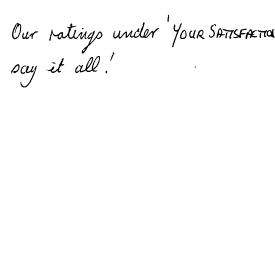 Our ratings under 'YOUR SATISFACTION
say it all!'